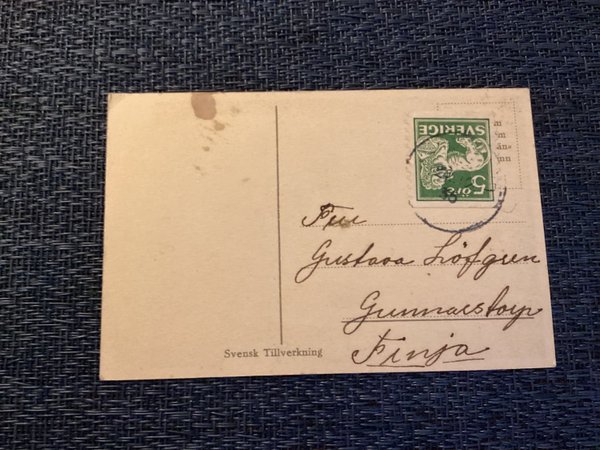 m
m
än-
nn
SVERIGE
5 ÖRE
Fru
Gustava Löfgren
Gunnarstorp
Finja
Svensk Tillverkning